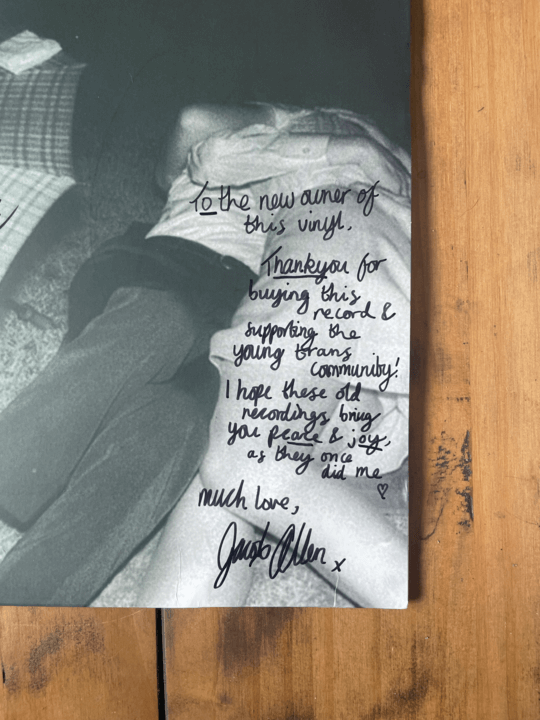 To the new owner of
this vinyl.
Thankyou for
buying this
record &
supporting the
young trans
community!
I hope these old
recordings bring
you peace & joy,
as they once
did me
♡
much love,
Jacob Allen x